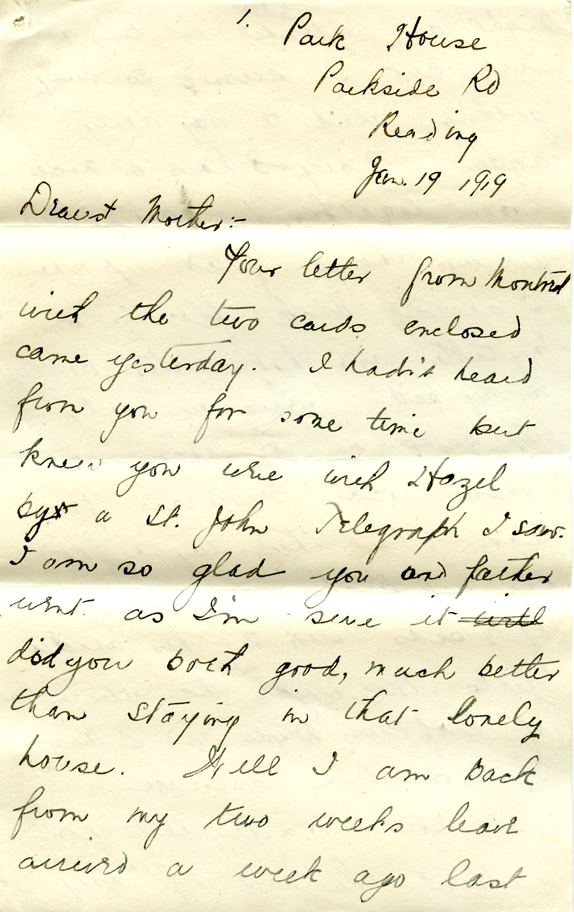 1.
Park House
Parkside Rd
Reading
Jan. 19 1919
Dearest Mother:-
Your letter from Montreal
with the two cards enclosed
came yesterday. I hadn't heard
from you for some time but
knew you were with Hazel
by a St. John Telegraph I saw.
I am so glad you and father
went as I'm sure it will
did you both good, much better
than staying in that lonely
house. Well I am back
from my two weeks leave
arrived a week ago last